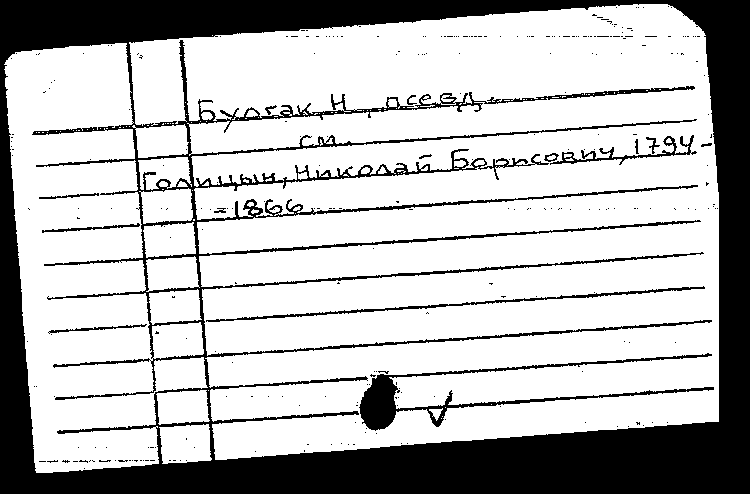 Булгак, Н., псевд.
см.
Голицын, Николай Борисович, 1794-
-1866